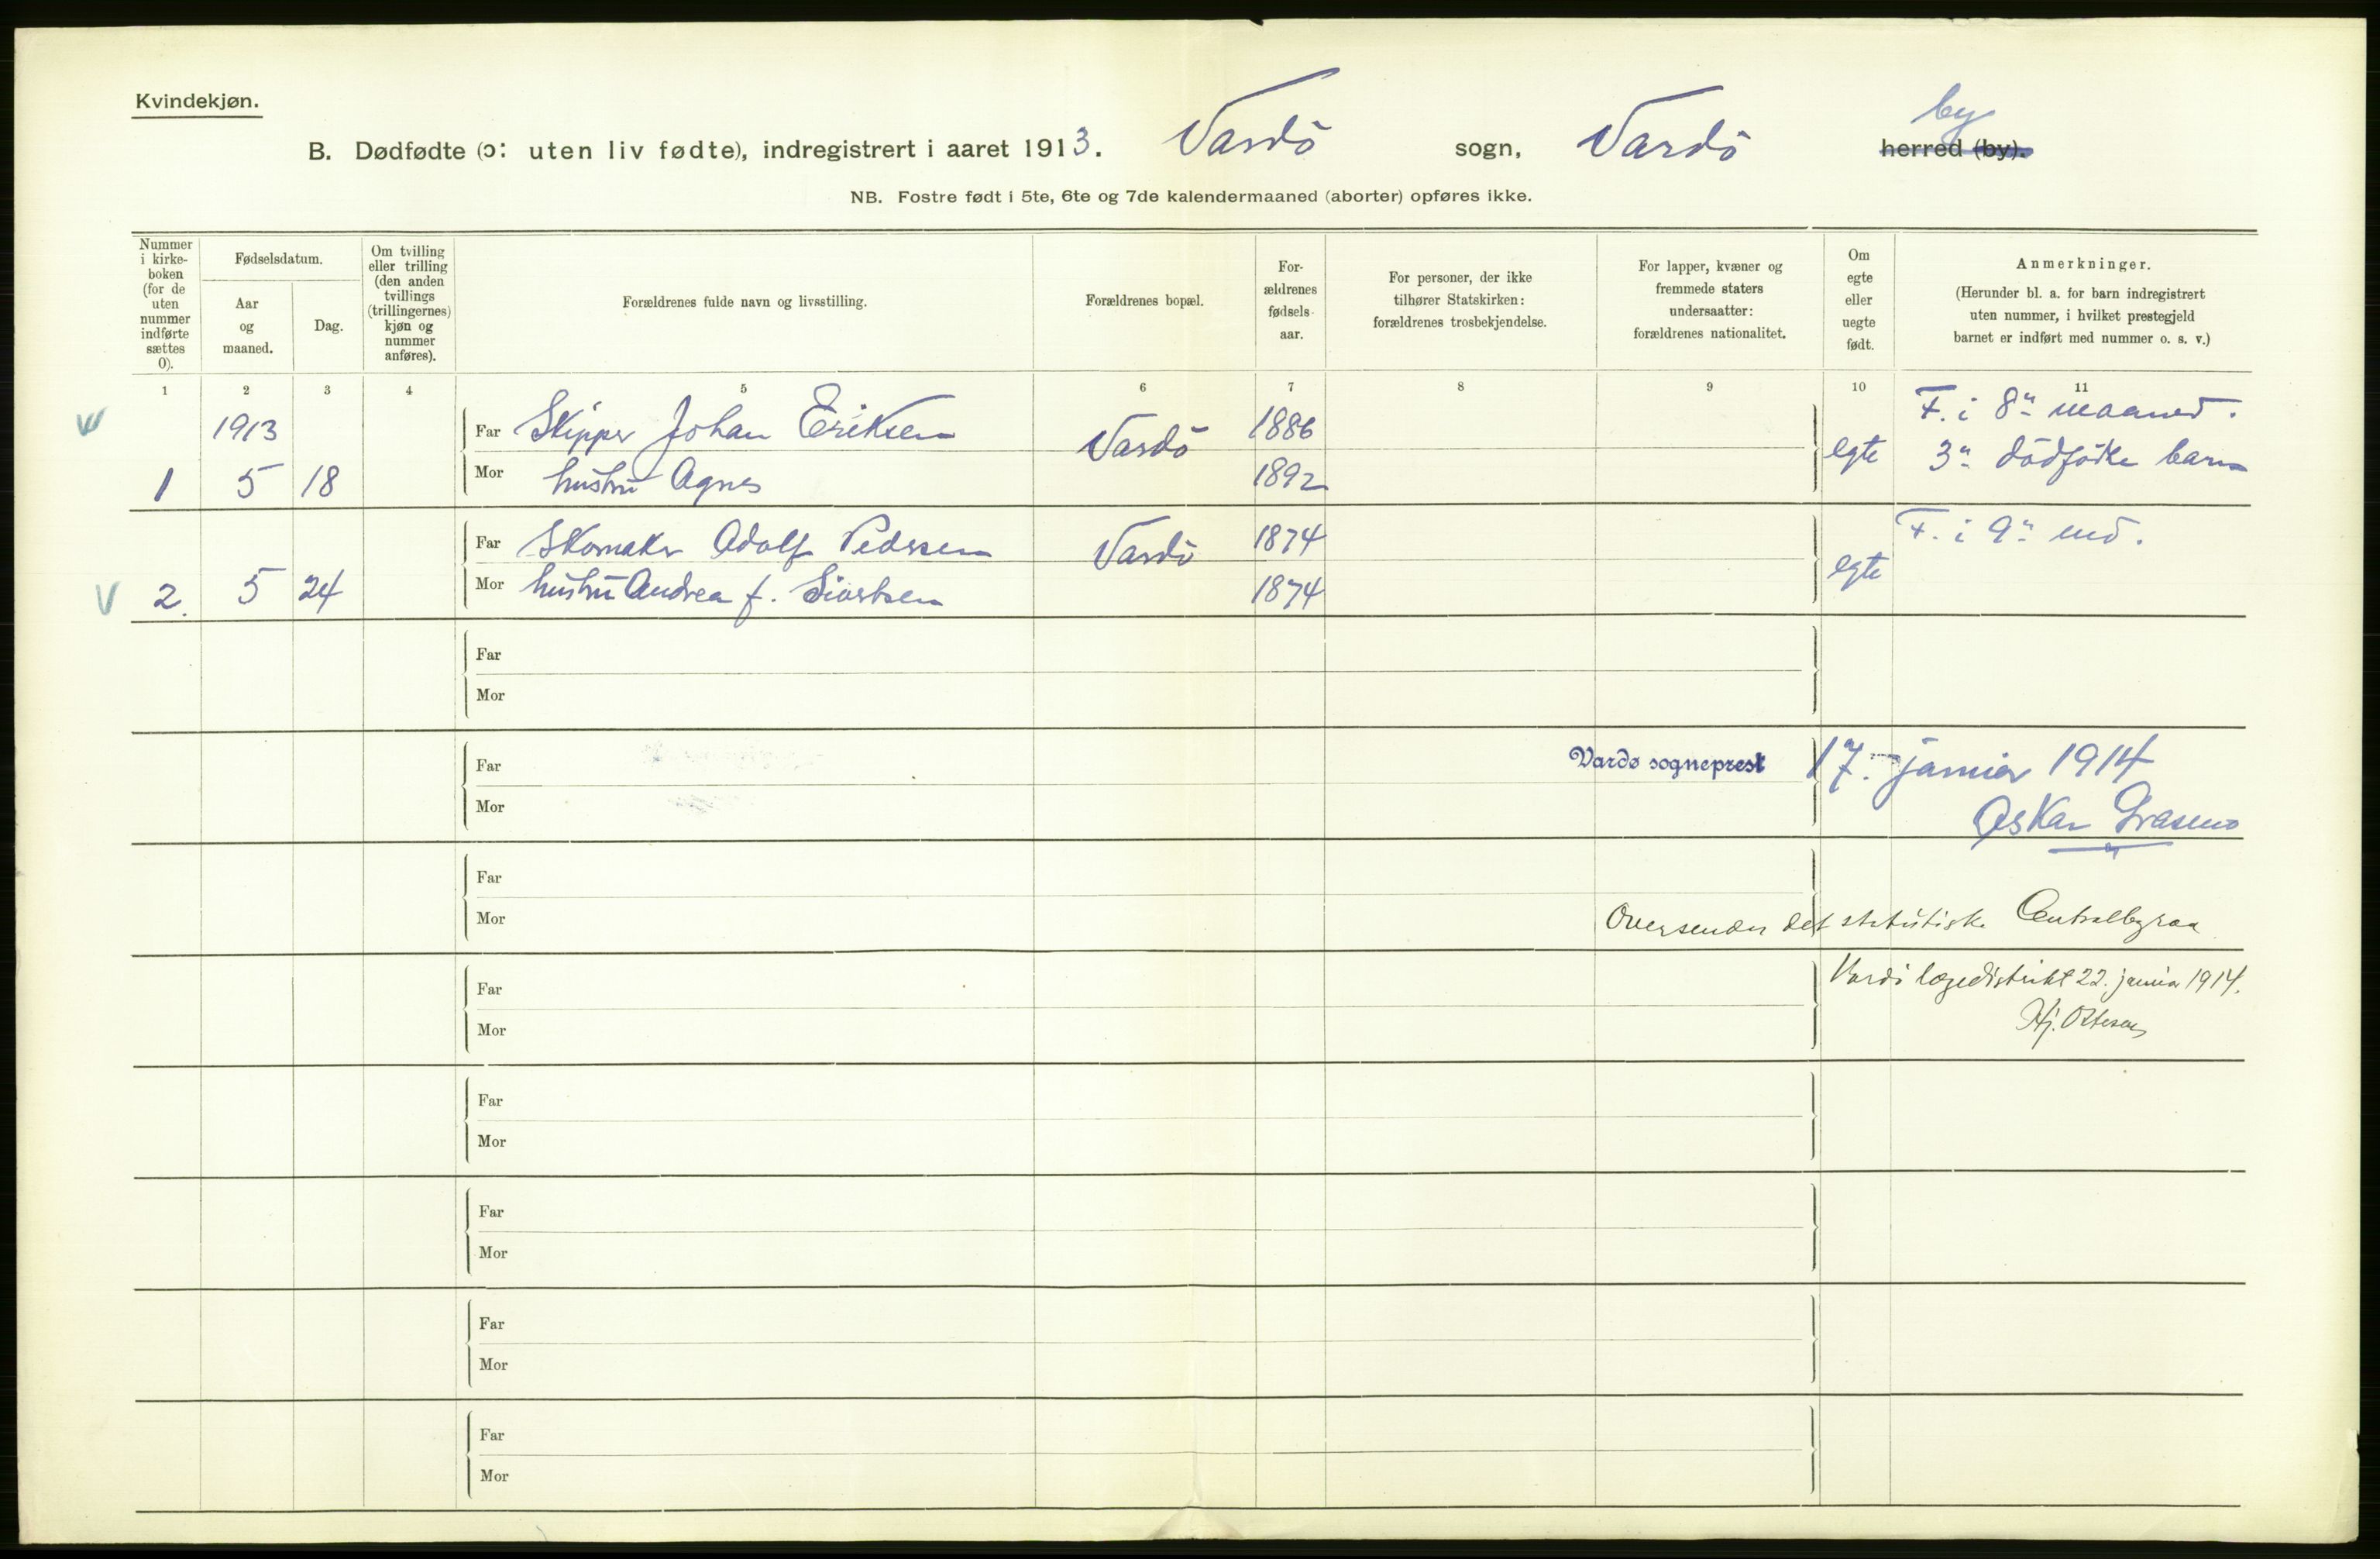 Kvindekjøn.
B. Dødfødte (ɔ: uten liv fødte), indregistrert i aaret 1913. Vardö sogn, Vardö by herred (by).
NB. Fostre født i 5te, 6te og 7de kalendermaaned (aborter) opføres ikke.
Nummer i kirke-boken (for de uten nummer indførte sættes 0).
Fødselsdatum.
Aar og maaned.
Dag.
Om tvilling eller trilling (den anden tvillings (trillingernes) kjøn og nummer anføres).
Forældrenes fulde navn og livsstilling.
Forældrenes bopæl.
For-ældrenes fødsels-aar.
For personer, der ikke tilhører Statskirken: forældrenes trosbekjendelse.
For lapper, kvæner og fremmede staters undersaatter: forældrenes nationalitet.
Om egte eller uegte født.
Anmerkninger. (Herunder bl. a. for barn indregistrert uten nummer, i hvilket prestegjeld barnet er indført med nummer o. s. v.)
1 2 3 4 5 6 7 8 9 10 11
1913 Far Skipper Johan Eriksen Vardö 1886 egte F. i 8n maaned.
1 5 18 Mor hustru Agnes 1892 3n dödfödte barn
Far Skomaker Adolf Pedersen Vardö 1874 egte F. i 9n md.
2. 5 24 Mor hustru Andrea f. Sivertsen 1874
Far
Mor
Far Vardø sogneprest 17. januar 1914
Mor Oskar
Far
Mor Oversendes det statistiske Centralbyraa
Far Vardö lægedistrikt 22. januar 1914.
Mor Hj. Ottesen
Far
Mor
Far
Mor
Far
Mor
Far
Mor